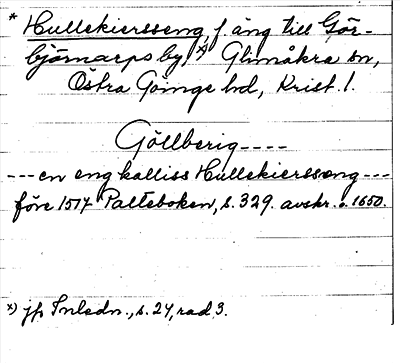 * Hullekiersseng, f. äng till Gör-
björnarps by,x) Glimåkra sn,
Östra Göinge hd, Krist. l.
Göllberig----
---en eng kalliss Hullekiersseng---
före 1517 Palteboken, s. 329. avskr. o. 1650.
x) jfr Inledn., s. 24, rad 3.